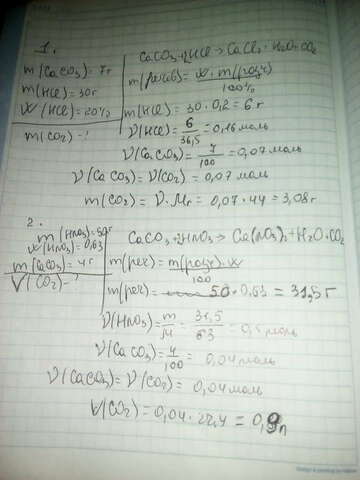 1.
m(CaCO₃)=7г
m(HCl)=30г
W(HCl)=20%
m(CO₂)-?
CaCO₃+2HCl→CaCl₂+H₂O+CO₂
m(речов)=w·m(розч)/100%
m(HCl)=30·0,2=6г
ν(HCl)=6/36,5=0,16моль
ν(CaCO₃)=7/100=0,07моль
ν(CaCO₃)=ν(CO₂)=0,07моль
m(CO₂)=ν·Mr=0,07·44=3,08г
2.
m(HNO₃)=50г
w(HNO₃)=0,63
m(CaCO₃)=4г
V(CO₂)-?
CaCO₃+2HNO₃→Ca(NO₃)₂+H₂O+CO₂
m(реч)=m(розч)·w/100
m(реч)=50·0,63=31,5г
ν(HNO₃)=m/M=31,5/63=0,5моль
ν(CaCO₃)=4/100=0,04моль
ν(CaCO₃)=ν(CO₂)=0,04моль
V(CO₂)=0,04·22,4=0,9л